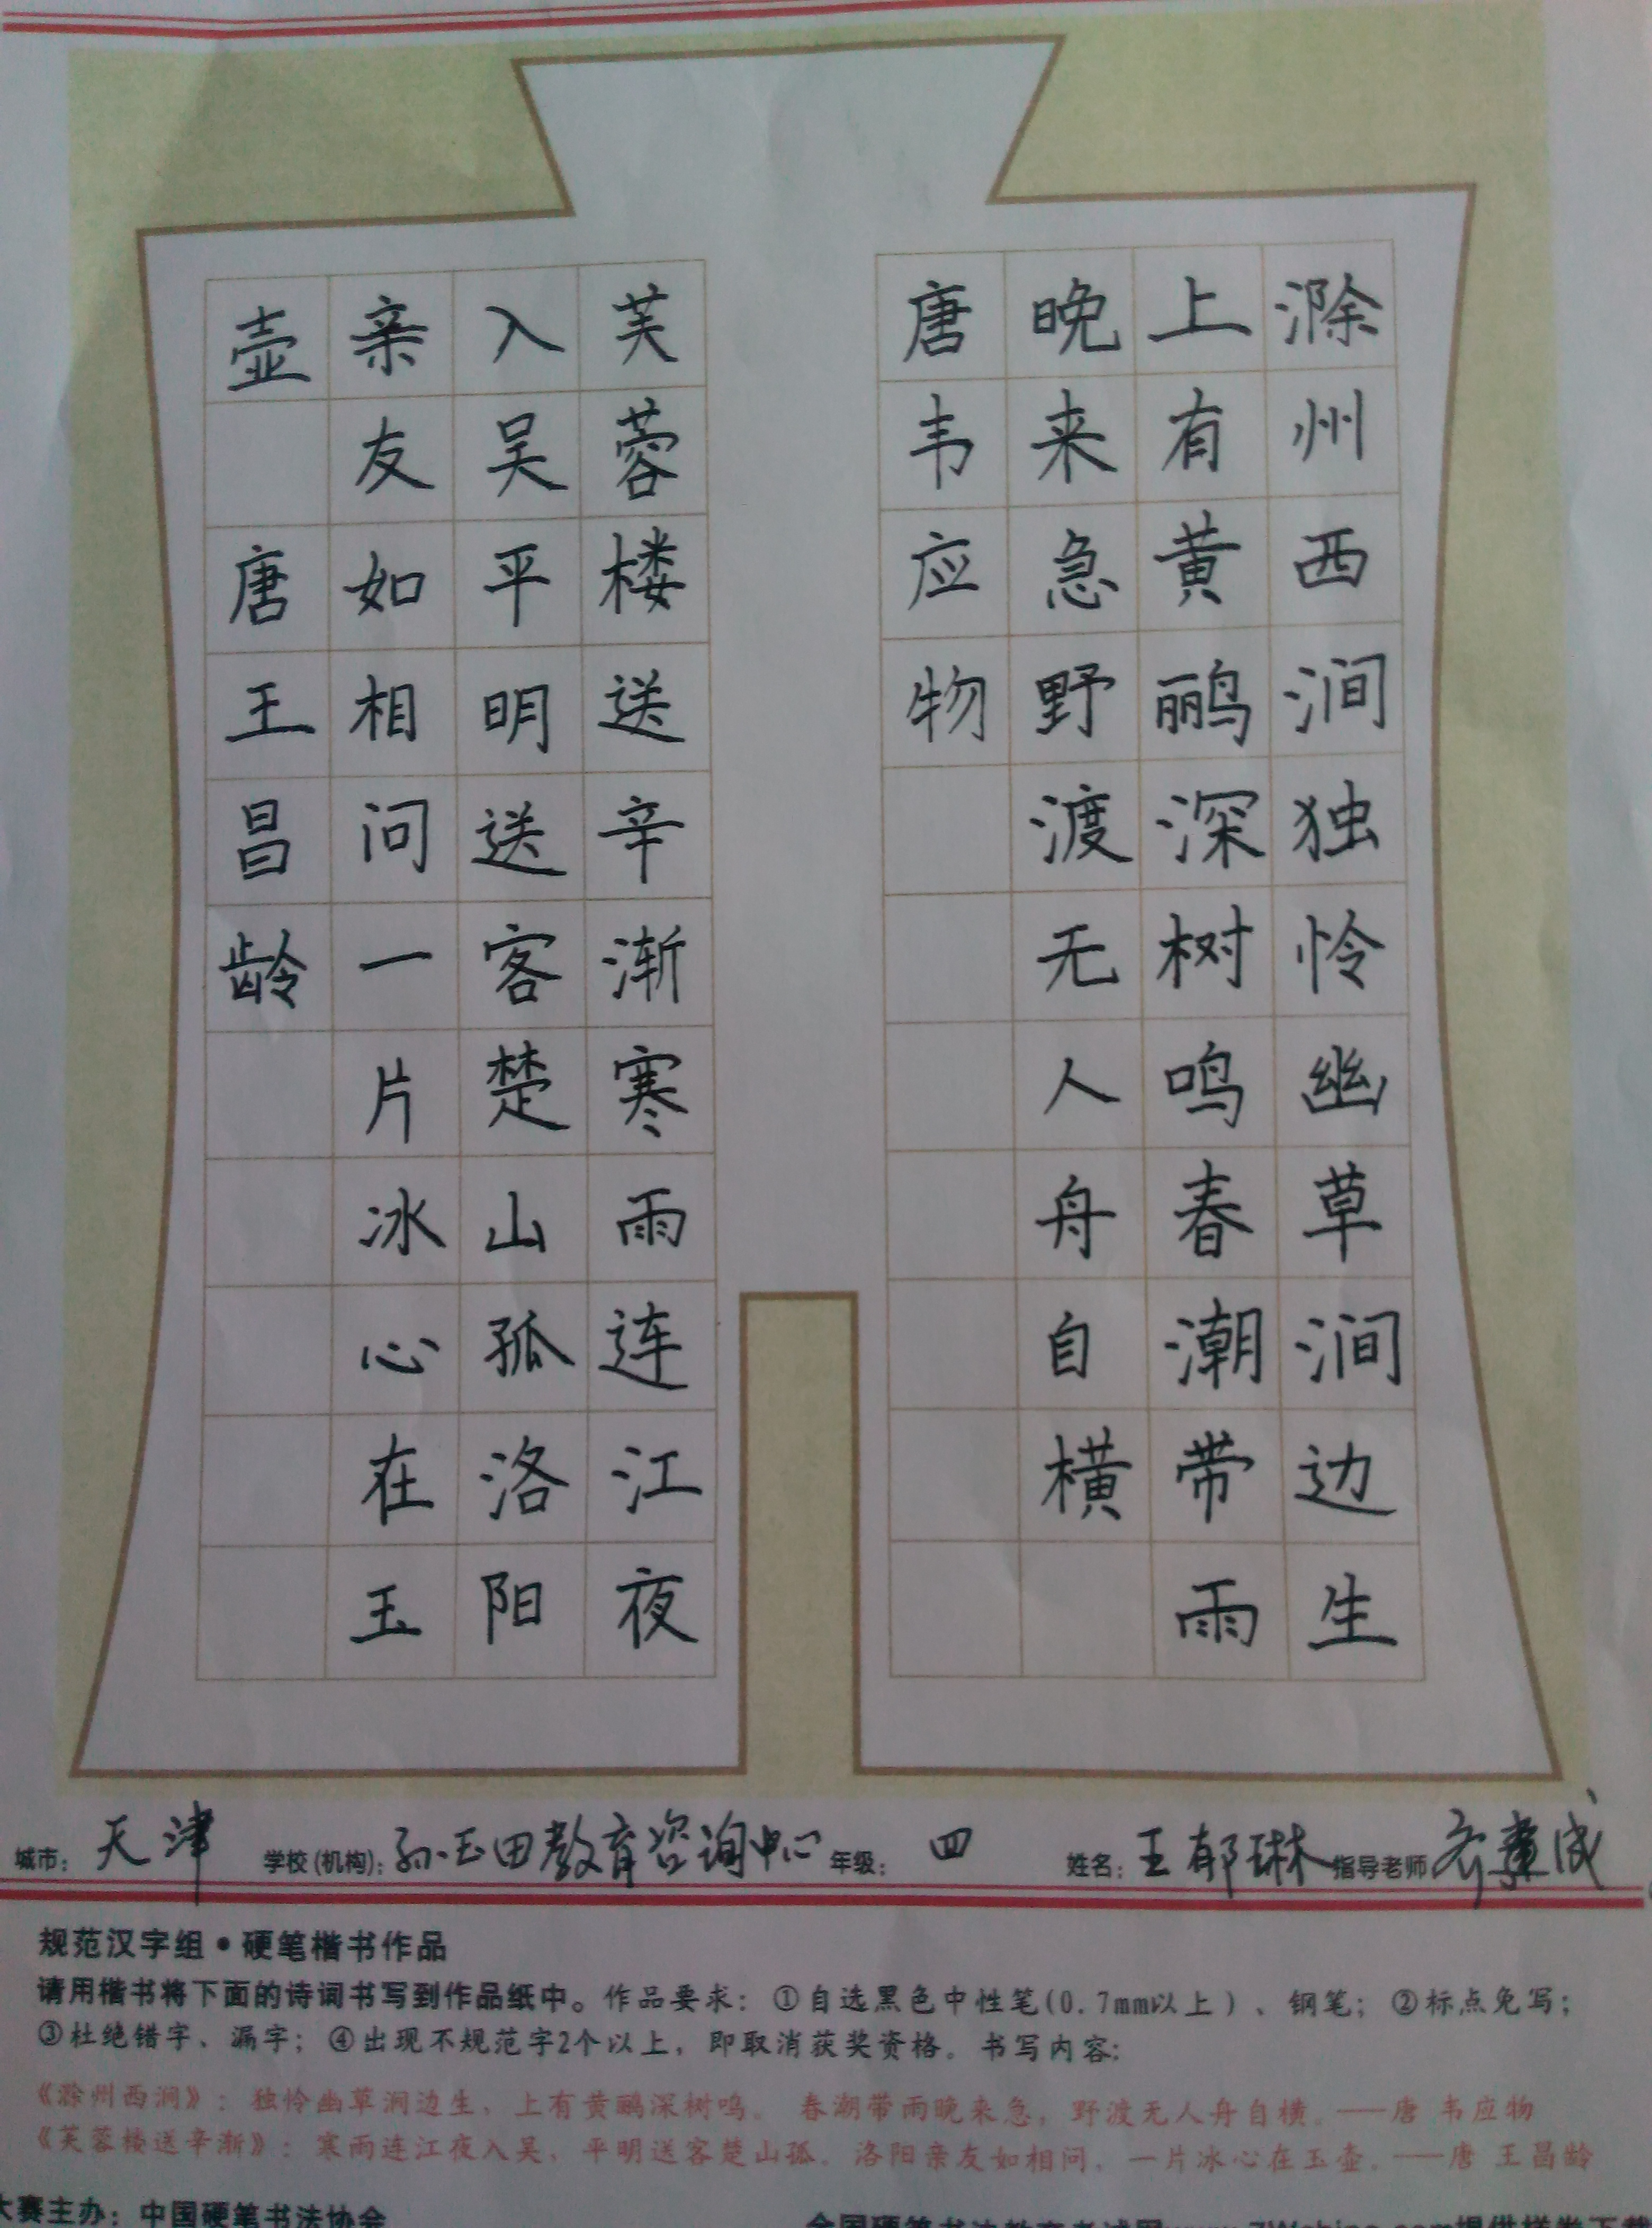 滁州西涧独怜幽草涧边生
上有黄鹂深树鸣春潮带雨
晚来急野渡无人舟自横
唐韦应物
芙蓉楼送辛渐寒雨连江夜
入吴平明送客楚山孤洛阳
亲友如相问一片冰心在玉
壶 唐王昌龄
城市：天津 学校(机构)：孙玉田教育咨询中心 年级：四 姓名：王郁琳 指导老师
规范汉字组·硬笔楷书作品
请用楷书将下面的诗词书写到作品纸中。作品要求：①自选黑色中性笔(0.7mm以上)、钢笔；②标点免写；
③杜绝错字、漏字；④出现不规范字2个以上，即取消获奖资格。书写内容：
《滁州西涧》：独怜幽草涧边生，上有黄鹂深树鸣。春潮带雨晚来急，野渡无人舟自横。——唐 韦应物
《芙蓉楼送辛渐》：寒雨连江夜入吴，平明送客楚山孤。洛阳亲友如相问，一片冰心在玉壶。——唐 王昌龄
大赛主办：中国硬笔书法协会